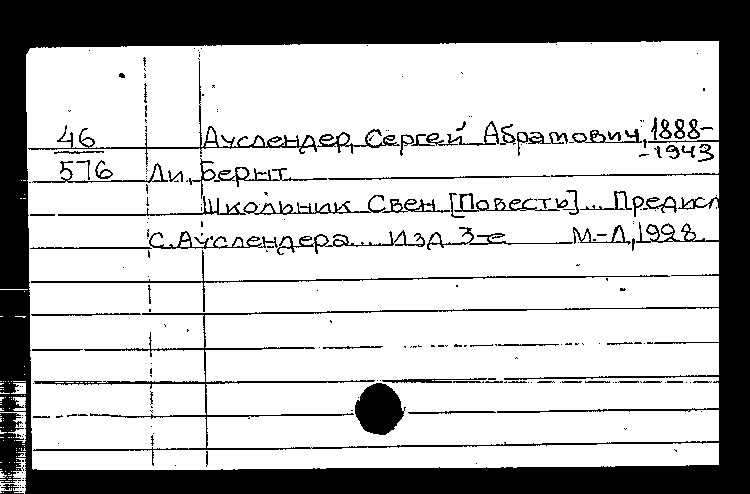 46 Ауслендер, Сергей Абрамович, 1888-
-1943
576 Ли, Бернт
Школьник Свен [Повесть]... Предисл
С. Ауслендера... Изд 3-е М.-Л., 1928.